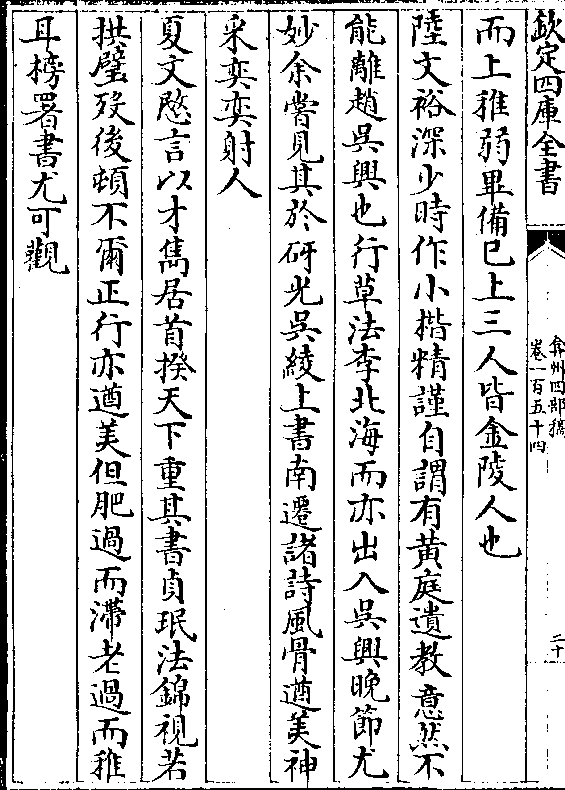 欽定四庫全書
弇州四部稿
卷一百五十四
二十
而上稚弱畢備已上三人皆金陵人也
陸文裕深少時作小楷精謹自謂有黃庭遺教意然不
能離趙吳興也行草法李北海而亦出入吳興晚節尤
妙余嘗見其於砑光吳綾上書南遷諸詩風骨遒美神
采奕奕射人
夏文愍言以才雋居首揆天下重其書貞珉法錦視若
拱璧歿後頓不爾正行亦遒美但肥過而滯老過而稚
耳榜署書尤可觀